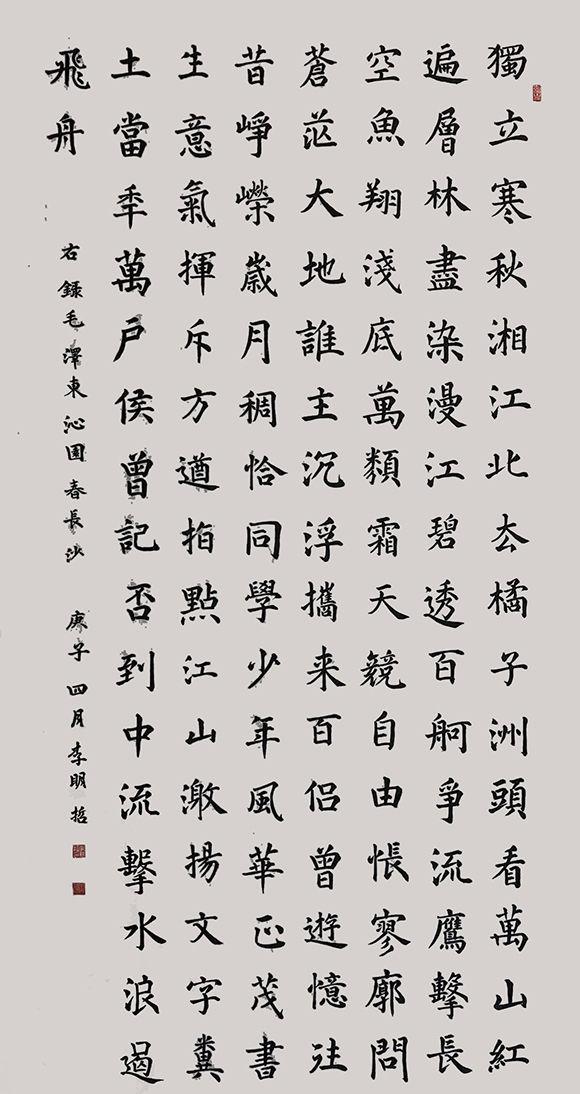 獨立寒秋湘江北厺橘子洲頭看萬山紅
遍層林盡染漫江碧透百舸爭流鷹擊長
空魚翔淺底萬類霜天競自由悵寥廓問
蒼茫大地誰主沉浮攜来百侣曾遊憶往
昔崢嶸歲月稠恰同學少年風華正茂書
生意氣揮斥方遒指點江山激揚文字糞
土當秊萬戶侯曾記否到中流擊水浪遏
飛舟
右錄毛澤東沁園春長沙 庚子四月李明哲